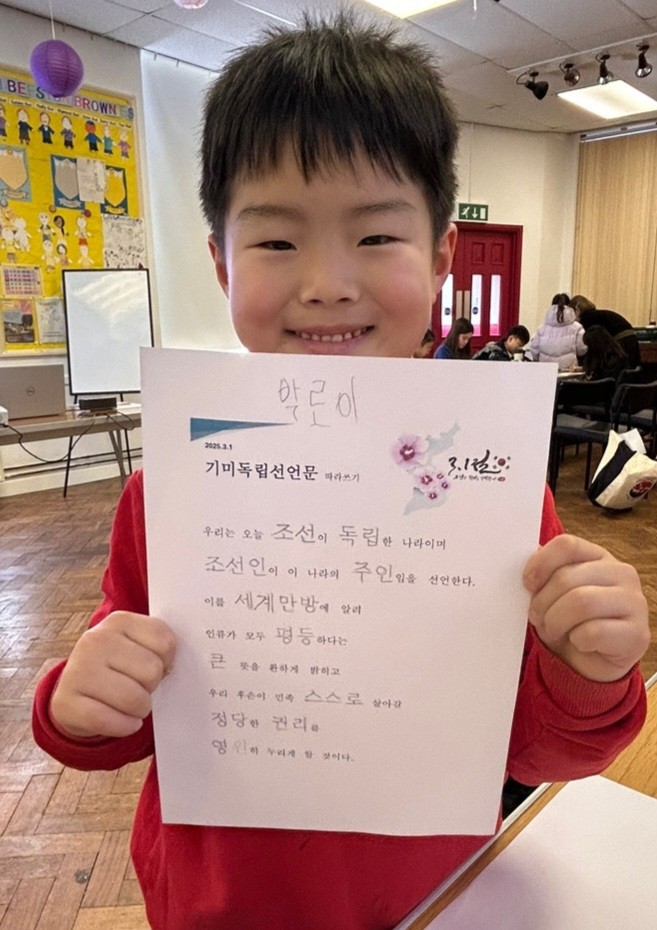 BEES BROWNIES
박로이
2025.3.1
기미독립선언문 따라쓰기
3.1절
우리는 오늘 조선이 독립한 나라이며
조선인이 이 나라의 주인임을 선언한다.
이를 세계만방에 알려
인류가 모두 평등하다는
큰 뜻을 환하게 밝히고
우리 후손이 민족 스스로 살아갈
정당한 권리를
영원히 누리게 할 것이다.